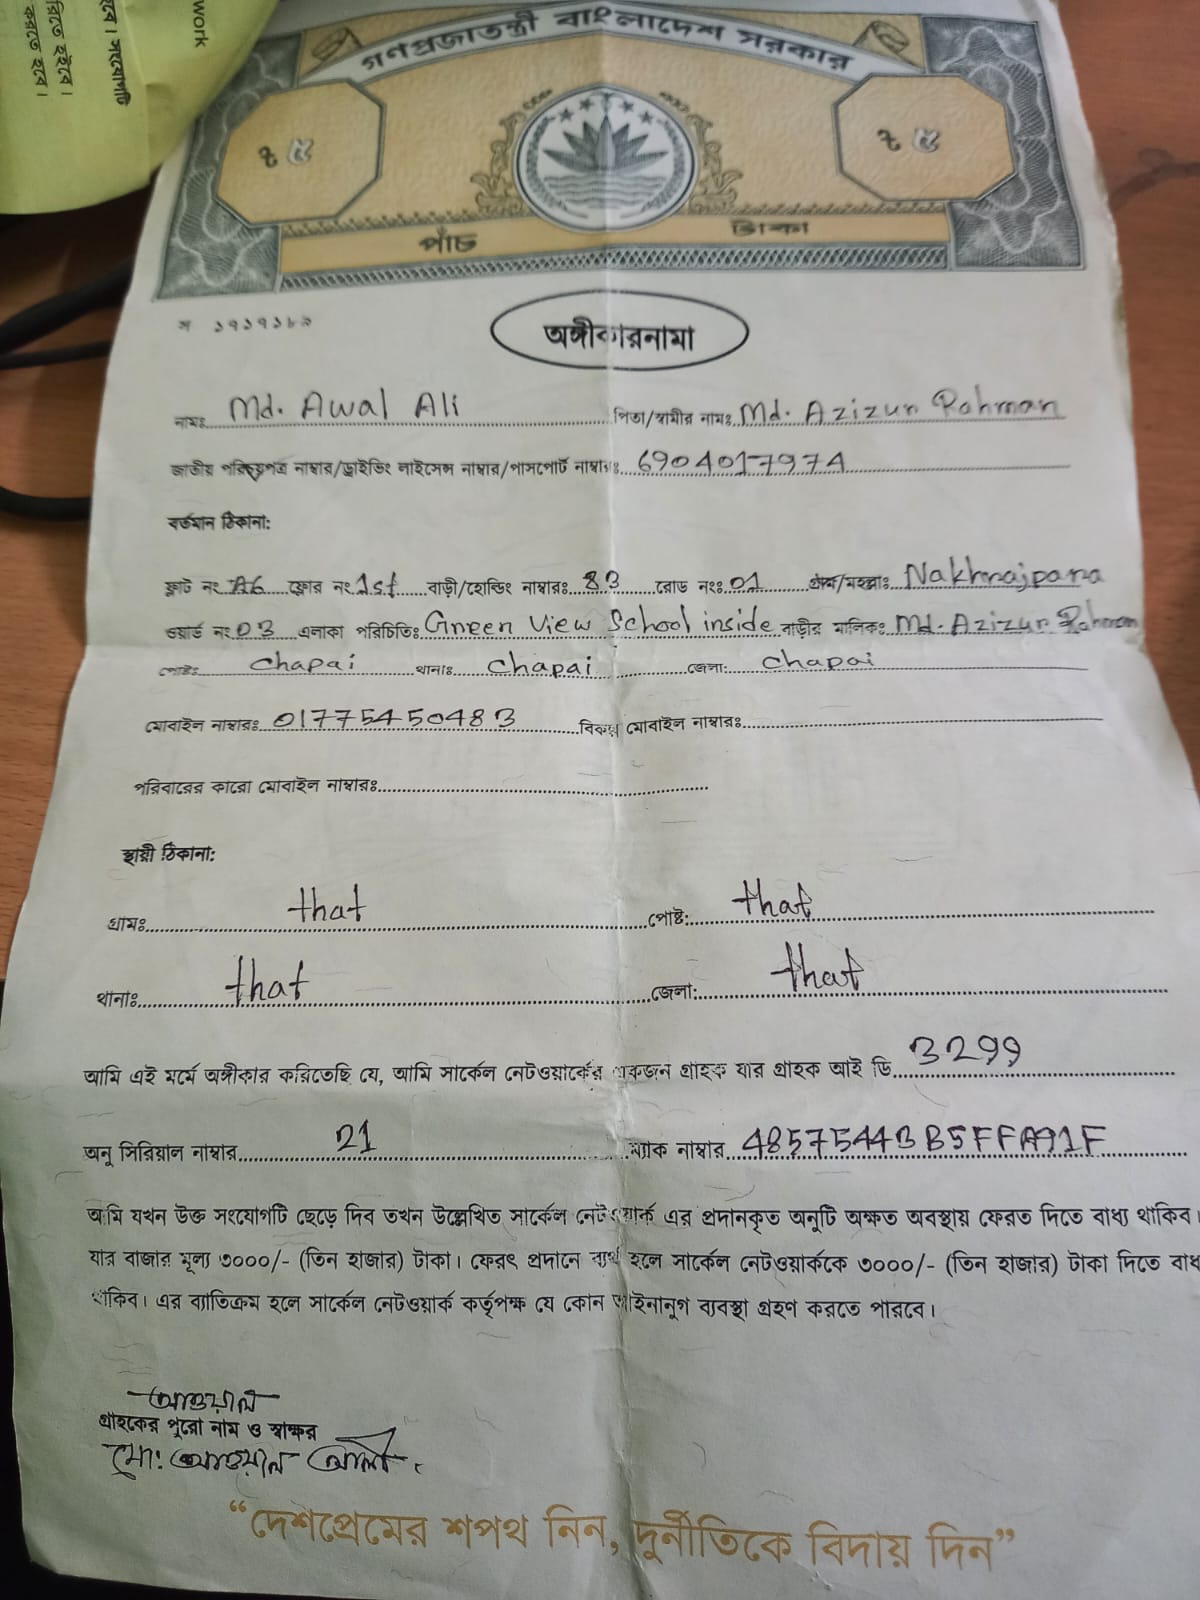 work
হবে। সংযোগটি
রিতে হইবে।
করতে হবে।
গণপ্রজাতন্ত্রী বাংলাদেশ সরকার
৳ ৫ ৳ ৫
পাঁচ টাকা
অঙ্গীকারনামা
নামঃ Md. Awal Ali পিতা/স্বামীর নামঃ Md. Azizur Rahman
জাতীয় পরিচয়পত্র নাম্বার/ড্রাইভিং লাইসেন্স নাম্বার/পাসপোর্ট নাম্বারঃ 6904017974
বর্তমান ঠিকানা:
ফ্লাট নং A6 ফ্লোর নং 1st বাড়ী/হোল্ডিং নাম্বারঃ 83 রোড নংঃ 01 গ্রাম/মহল্লাঃ Nakhrajpara
ওয়ার্ড নং 03 এলাকা পরিচিতিঃ Green View School inside বাড়ীর মালিকঃ Md. Azizur Rahman
পোষ্টঃ Chapai থানাঃ Chapai জেলা: Chapai
মোবাইল নাম্বারঃ 01775450483 বিকল্প মোবাইল নাম্বারঃ
পরিবারের কারো মোবাইল নাম্বারঃ
স্থায়ী ঠিকানা:
গ্রামঃ that পোষ্ট: that
থানাঃ that জেলা: that
আমি এই মর্মে অঙ্গীকার করিতেছি যে, আমি সার্কেল নেটওয়ার্কের একজন গ্রাহক যার গ্রাহক আই ডি 3299
অনু সিরিয়াল নাম্বার 21 ম্যাক নাম্বার 48575443B5FFA91F
আমি যখন উক্ত সংযোগটি ছেড়ে দিব তখন উল্লেখিত সার্কেল নেটওয়ার্ক এর প্রদানকৃত অনুটি অক্ষত অবস্থায় ফেরত দিতে বাধ্য থাকিব।
যার বাজার মূল্য ৩০০০/- (তিন হাজার) টাকা। ফেরৎ প্রদানে ব্যর্থ হলে সার্কেল নেটওয়ার্ককে ৩০০০/- (তিন হাজার) টাকা দিতে বাধ্য
থাকিব। এর ব্যতিক্রম হলে সার্কেল নেটওয়ার্ক কর্তৃপক্ষ যে কোন আইনানুগ ব্যবস্থা গ্রহণ করতে পারবে।
আওয়াল
গ্রাহকের পুরো নাম ও স্বাক্ষর
মো: আওয়াল আলী
“দেশপ্রেমের শপথ নিন, দুর্নীতিকে বিদায় দিন”